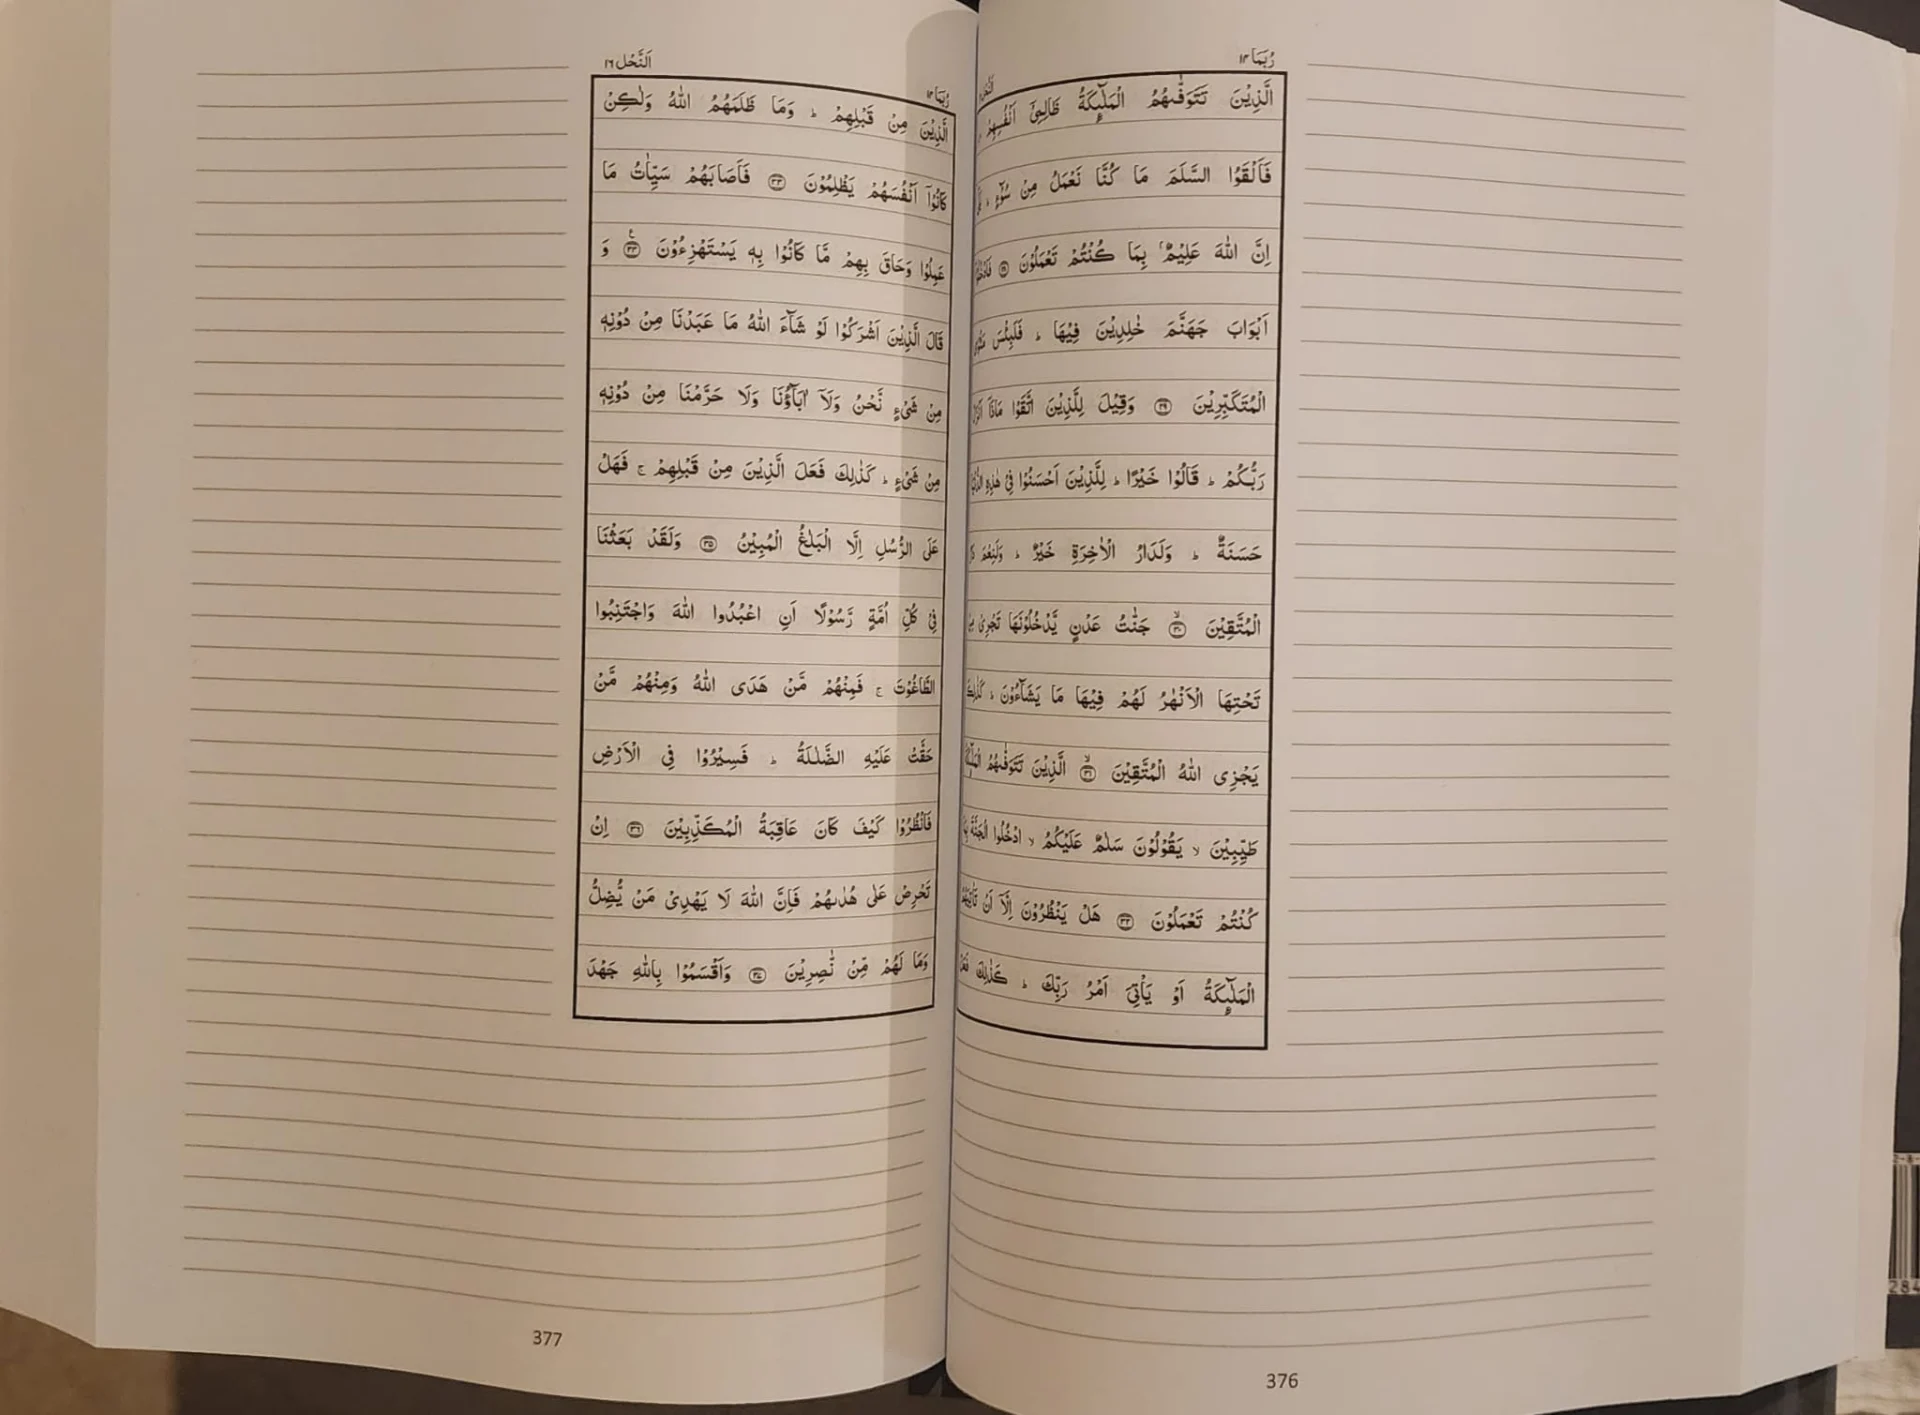 رُبَمَا ١٤
الَّذِيْنَ تَتَوَفّٰىهُمُ الْمَلٰٓئِكَةُ ظَالِمِىْٓ اَنْفُسِهِمْ
فَاَلْقَوُا السَّلَمَ مَا كُنَّا نَعْمَلُ مِنْ سُوْٓءٍ ؕ
اِنَّ اللّٰهَ عَلِيْمٌۢ بِمَا كُنْتُمْ تَعْمَلُوْنَ
اَبْوَابَ جَهَنَّمَ خٰلِدِيْنَ فِيْهَا ؕ فَلَبِئْسَ مَثْوَى
الْمُتَكَبِّرِيْنَ ۝٢٩ وَقِيْلَ لِلَّذِيْنَ اتَّقَوْا مَاذَاۤ اَنْزَلَ
رَبُّكُمْ ؕ قَالُوْا خَيْرًا ؕ لِلَّذِيْنَ اَحْسَنُوْا فِىْ هٰذِهِ الدُّنْيَا
حَسَنَةٌ ؕ وَلَدَارُ الْاٰخِرَةِ خَيْرٌ ؕ وَلَنِعْمَ
الْمُتَّقِيْنَ ۝٣٠ۙ جَنّٰتُ عَدْنٍ يَّدْخُلُوْنَهَا تَجْرِىْ مِنْ
تَحْتِهَا الْاَنْهٰرُ لَهُمْ فِيْهَا مَا يَشَآءُوْنَ ؕ كَذٰلِكَ
يَجْزِى اللّٰهُ الْمُتَّقِيْنَ ۝٣١ۙ الَّذِيْنَ تَتَوَفّٰىهُمُ الْمَلٰٓئِكَةُ
طَيِّبِيْنَ ۙ يَقُوْلُوْنَ سَلٰمٌ عَلَيْكُمُ ۙ ادْخُلُوا الْجَنَّةَ بِمَا
كُنْتُمْ تَعْمَلُوْنَ ۝٣٢ هَلْ يَنْظُرُوْنَ اِلَّاۤ اَنْ تَاْتِيَهُمُ
الْمَلٰٓئِكَةُ اَوْ يَاْتِىَ اَمْرُ رَبِّكَ ؕ كَذٰلِكَ فَعَلَ
376
رُبَمَا ١٤
اَلنَّحْل ١٦
الَّذِيْنَ مِنْ قَبْلِهِمْ ؕ وَمَا ظَلَمَهُمُ اللّٰهُ وَلٰكِنْ
كَانُوْۤا اَنْفُسَهُمْ يَظْلِمُوْنَ ۝٣٣ فَاَصَابَهُمْ سَيِّاٰتُ مَا
عَمِلُوْا وَحَاقَ بِهِمْ مَّا كَانُوْا بِهٖ يَسْتَهْزِءُوْنَ ۝٣٤ وَ
قَالَ الَّذِيْنَ اَشْرَكُوْا لَوْ شَآءَ اللّٰهُ مَا عَبَدْنَا مِنْ دُوْنِهٖ
مِنْ شَىْءٍ نَّحْنُ وَلَاۤ اٰبَآؤُنَا وَلَا حَرَّمْنَا مِنْ دُوْنِهٖ
مِنْ شَىْءٍ ؕ كَذٰلِكَ فَعَلَ الَّذِيْنَ مِنْ قَبْلِهِمْ ۚ فَهَلْ
عَلَى الرُّسُلِ اِلَّا الْبَلٰغُ الْمُبِيْنُ ۝٣٥ وَلَقَدْ بَعَثْنَا
فِىْ كُلِّ اُمَّةٍ رَّسُوْلًا اَنِ اعْبُدُوا اللّٰهَ وَاجْتَنِبُوا
الطَّاغُوْتَ ۚ فَمِنْهُمْ مَّنْ هَدَى اللّٰهُ وَمِنْهُمْ مَّنْ
حَقَّتْ عَلَيْهِ الضَّلٰلَةُ ؕ فَسِيْرُوْا فِى الْاَرْضِ
فَانْظُرُوْا كَيْفَ كَانَ عَاقِبَةُ الْمُكَذِّبِيْنَ ۝٣٦ اِنْ
تَحْرِصْ عَلٰى هُدٰىهُمْ فَاِنَّ اللّٰهَ لَا يَهْدِىْ مَنْ يُّضِلُّ
وَمَا لَهُمْ مِّنْ نّٰصِرِيْنَ ۝٣٧ وَاَقْسَمُوْا بِاللّٰهِ جَهْدَ
377